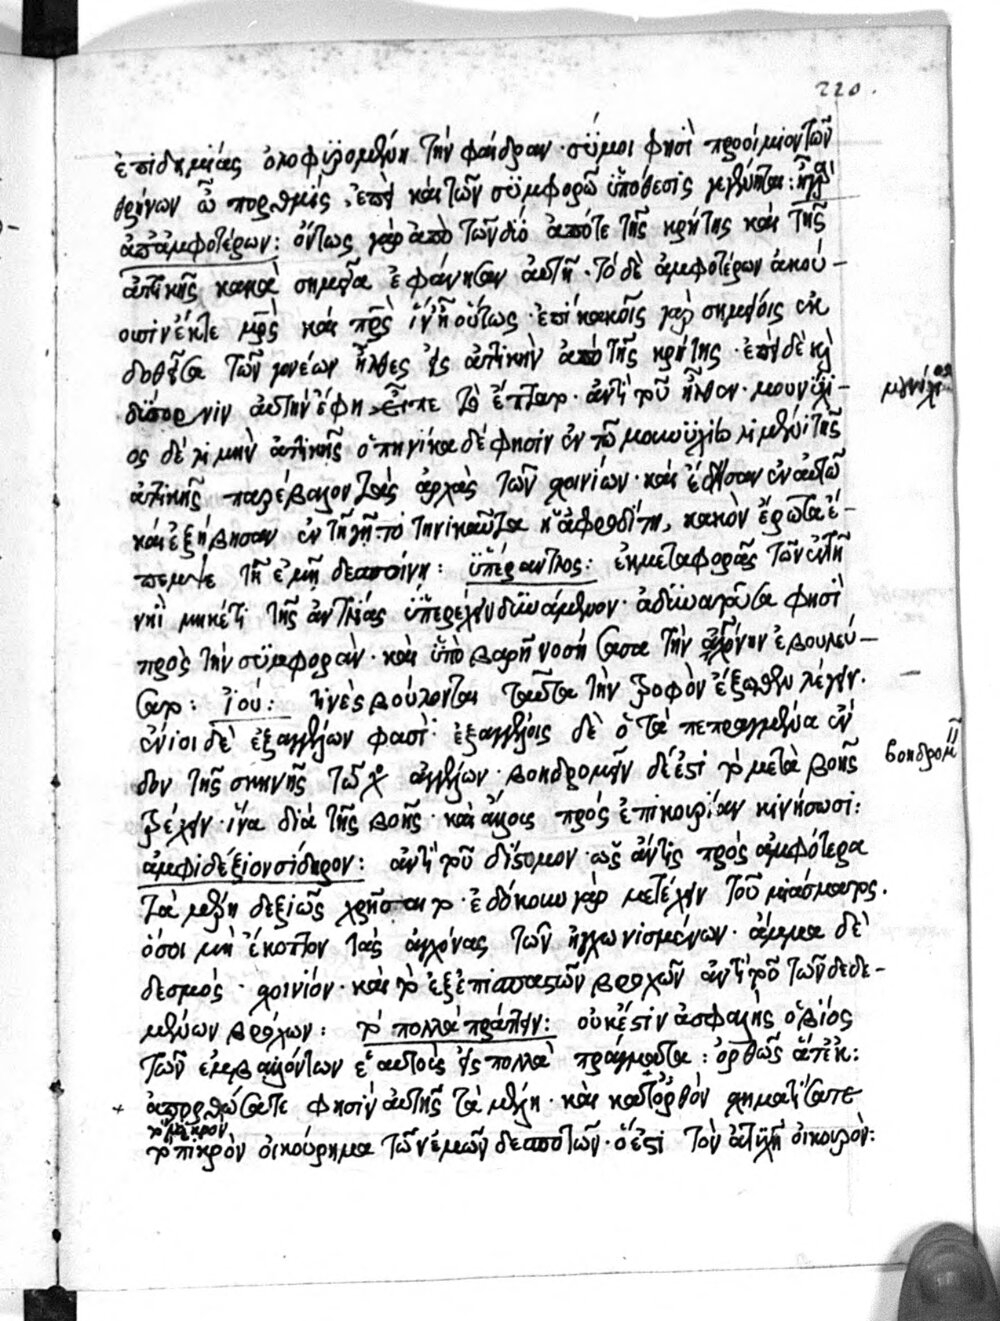 220.
ἐπιδημίας ὀλοφυρομένη τὴν φαίδραν· σύμοι φησὶ προοίμιον τῶν
θρήνων ὦ πορθμὶς, ἐπεὶ καὶ τῶν συμφορῶν ὑπόθεσις γεγένηται: ἢ γὰρ
ἀπ' ἀμφοτέρων: ὄντως γὰρ ἀπὸ τῶν δύο ἀπό τε τῆς κρήτης καὶ τῆς
ἀττικῆς κακὰ σημεῖα ἐφάνησαν αὐτῆ· τὸ δὲ ἀμφοτέρων ἀκού-
ουσιν ἔκτε μρς καὶ πρς ἵν' ἦ οὕτως· ἐπὶ κακοῖς γὰρ σημείοις ἐκ
δοθεῖσα τῶν γονέων ἦλθες εἰς ἀττικὴν ἀπὸ τῆς κρήτης· ἐπεὶ δὲ καὶ
δύσορνιν αὐτὴν ἔφη, εἶπε τὸ ἔπτατο· ἀντὶ τοῦ ἦλθον· μουνίχι-
ος δὲ λιμὴν ἀττικῆς ὁπηνίκα δέ φησιν ἐν τῶ μουνυχίω λιμένι τῆς
ἀττικῆς παρέβαλον τὰς ἀρχὰς τῶν χοινίων· καὶ ἔδησαν ἐν αὐτῶ
καὶ ἐξήβησαν ἐν τῆ γῆ· τὸ τηνικαῦτα ἡ ἀφροδίτη, κακὸν ἔρωτα ἔ-
πεμψε τῆ ἐμῆ δεσποίνη: ὑπέραντλος: ἐκ μεταφορᾶς τῶν ἐν τῆ
νηὶ μηκέτι τῆς ἀντλίας ὑπερέχειν δυναμένων· ἀδυνατοῦσα φησὶ
πρὸς τὴν συμφορὰν· καὶ ὑποβαρῆ νοσήσασα τὴν ἀγχόνην ἐβουλεύ-
σατο: ἰού: τινὲς βούλονται ταῦτα τὴν τροφὸν ἔξωθεν λέγειν·
ἔνιοι δὲ ἐξαγγέλων φασὶ· ἐξάγγελος δὲ ὁ τὰ πεπραγμένα ἔν
δον τῆς σκηνῆς τῶ χ ἀγγέλων· βοηδρομεῖν δέ ἐστι τὸ μετὰ βοῆς
τρέχειν· ἵνα διὰ τῆς βοῆς· καὶ ἄλλοις πρὸς ἐπικουρίαν κινήσωσι:
ἀμφιδέξιον σίδηρον: ἀντὶ τοῦ δίστομον· ὡς ἄν τις πρὸς ἀμφότερα
τὰ μέρη δεξιῶς χρήσαιτο· ἐδόκουν γὰρ μετέχειν τοῦ μιάσματος.
ὅσοι μὴ ἔκοπτον τὰς ἀγχόνας τῶν ἠγχωνισμένων· ἅμμα δὲ
δεσμὸς· χοινίον· καὶ τὸ ἐξ ἐπισπαστῶν βρόχων ἀντὶ τοῦ τῶν δεδε-
μένων βρόχων: τὸ πολλὰ πράττειν: οὐκ ἔστιν ἀσφαλὴς ὁ βίος
τῶν ἐμβαλόντων ἑαυτοὺς εἰς πολλὰ πράγματα: ὀρθῶς ἅπ ἐκ:
+ ἀπορθώσατε φησὶν αὐτῆς τὰ μέλη· καὶ κατόρθὸν χηματίσατε
τὸ μακρὸν
τὸ πικρὸν οἰκούρημα τῶν ἐμῶν δεσποτῶν· ὅ ἐστι τὸν ἀτυχῆ οἰκουρὸν:
μουνύχιος
βοηδρομεῖν